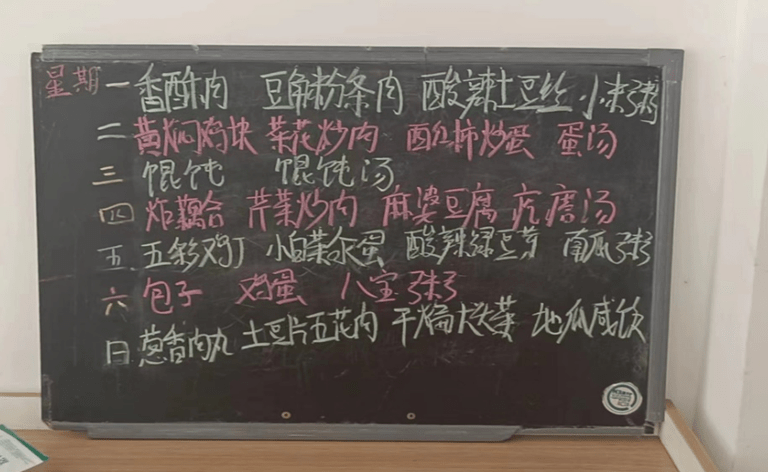 星期一 香酥肉 豆角粉条肉 酸辣土豆丝 小米粥
二 黄焖鸡块 菜花炒肉 西红柿炒蛋 蛋汤
三 馄饨 馄饨汤
四 炸藕合 芹菜炒肉 麻婆豆腐 疙瘩汤
五 五彩鸡丁 小白菜氽蛋 酸辣绿豆芽 南瓜粥
六 包子 鸡蛋 八宝粥
日 葱香肉丸 土豆片五花肉 干煸大头菜 地瓜咸饮